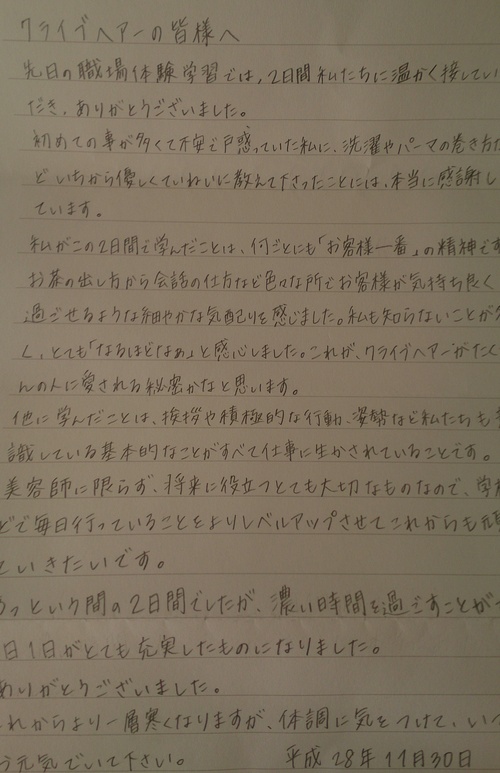 クライブヘアーの皆様へ
先日の職場体験学習では、2日間私たちに温かく接してい
だき、ありがとうございました。
初めての事が多くて不安で戸惑っていた私に、洗濯やパーマの巻き方な
どいちから優しくていねいに教えて下さったことには、本当に感謝し
ています。
私がこの2日間で学んだことは、何ごとにも「お客様一番」の精神です
お茶の出し方から会話の仕方など色々な所でお客様が気持ち良く
過ごせるような細やかな気配りを感じました。私も知らないことが多
く、とても「なるほどなぁ」と感心しました。これが、クライブヘアーがたく
んの人に愛される秘密かなと思います。
他に学んだことは、挨拶や積極的な行動、姿勢など私たちも
識している基本的なことがすべて仕事に生かされていることです。
美容師に限らず、将来に役立つとても大切なものなので、学校
どで毎日行っていることをよりレベルアップさせてこれからも頑
ていきたいです。
っという間の2日間でしたが、濃い時間を過ごすことが
日1日がとても充実したものになりました。
ありがとうございました。
れからより一層寒くなりますが、体調に気をつけて、いつ
う元気でいて下さい。 平成28年11月30日